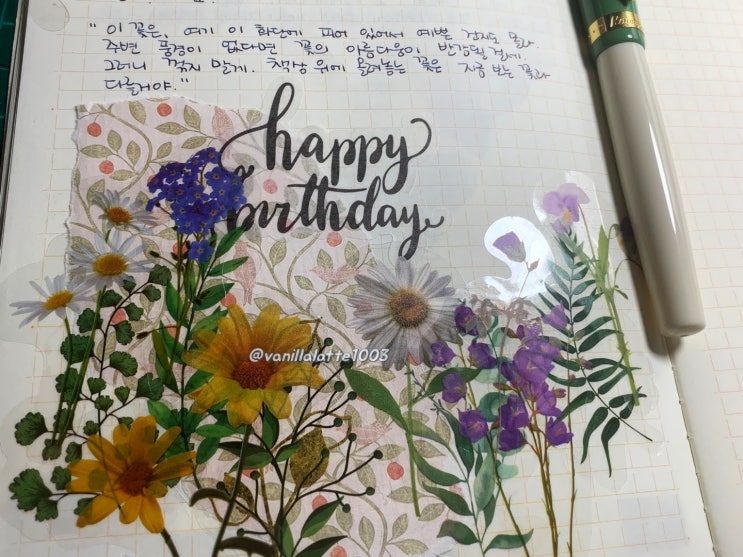 "이 꽃은, 여기 이 화단에 피어 있어서 예쁜 건지도 몰라.
주변 풍경이 없다면 꽃의 아름다움이 반감될 걸세.
그러니 꺾지 말게. 책상 위에 올려놓는 꽃은 지금 보는 꽃과
다를거야."
happy
birthday
@vanillalatte1003